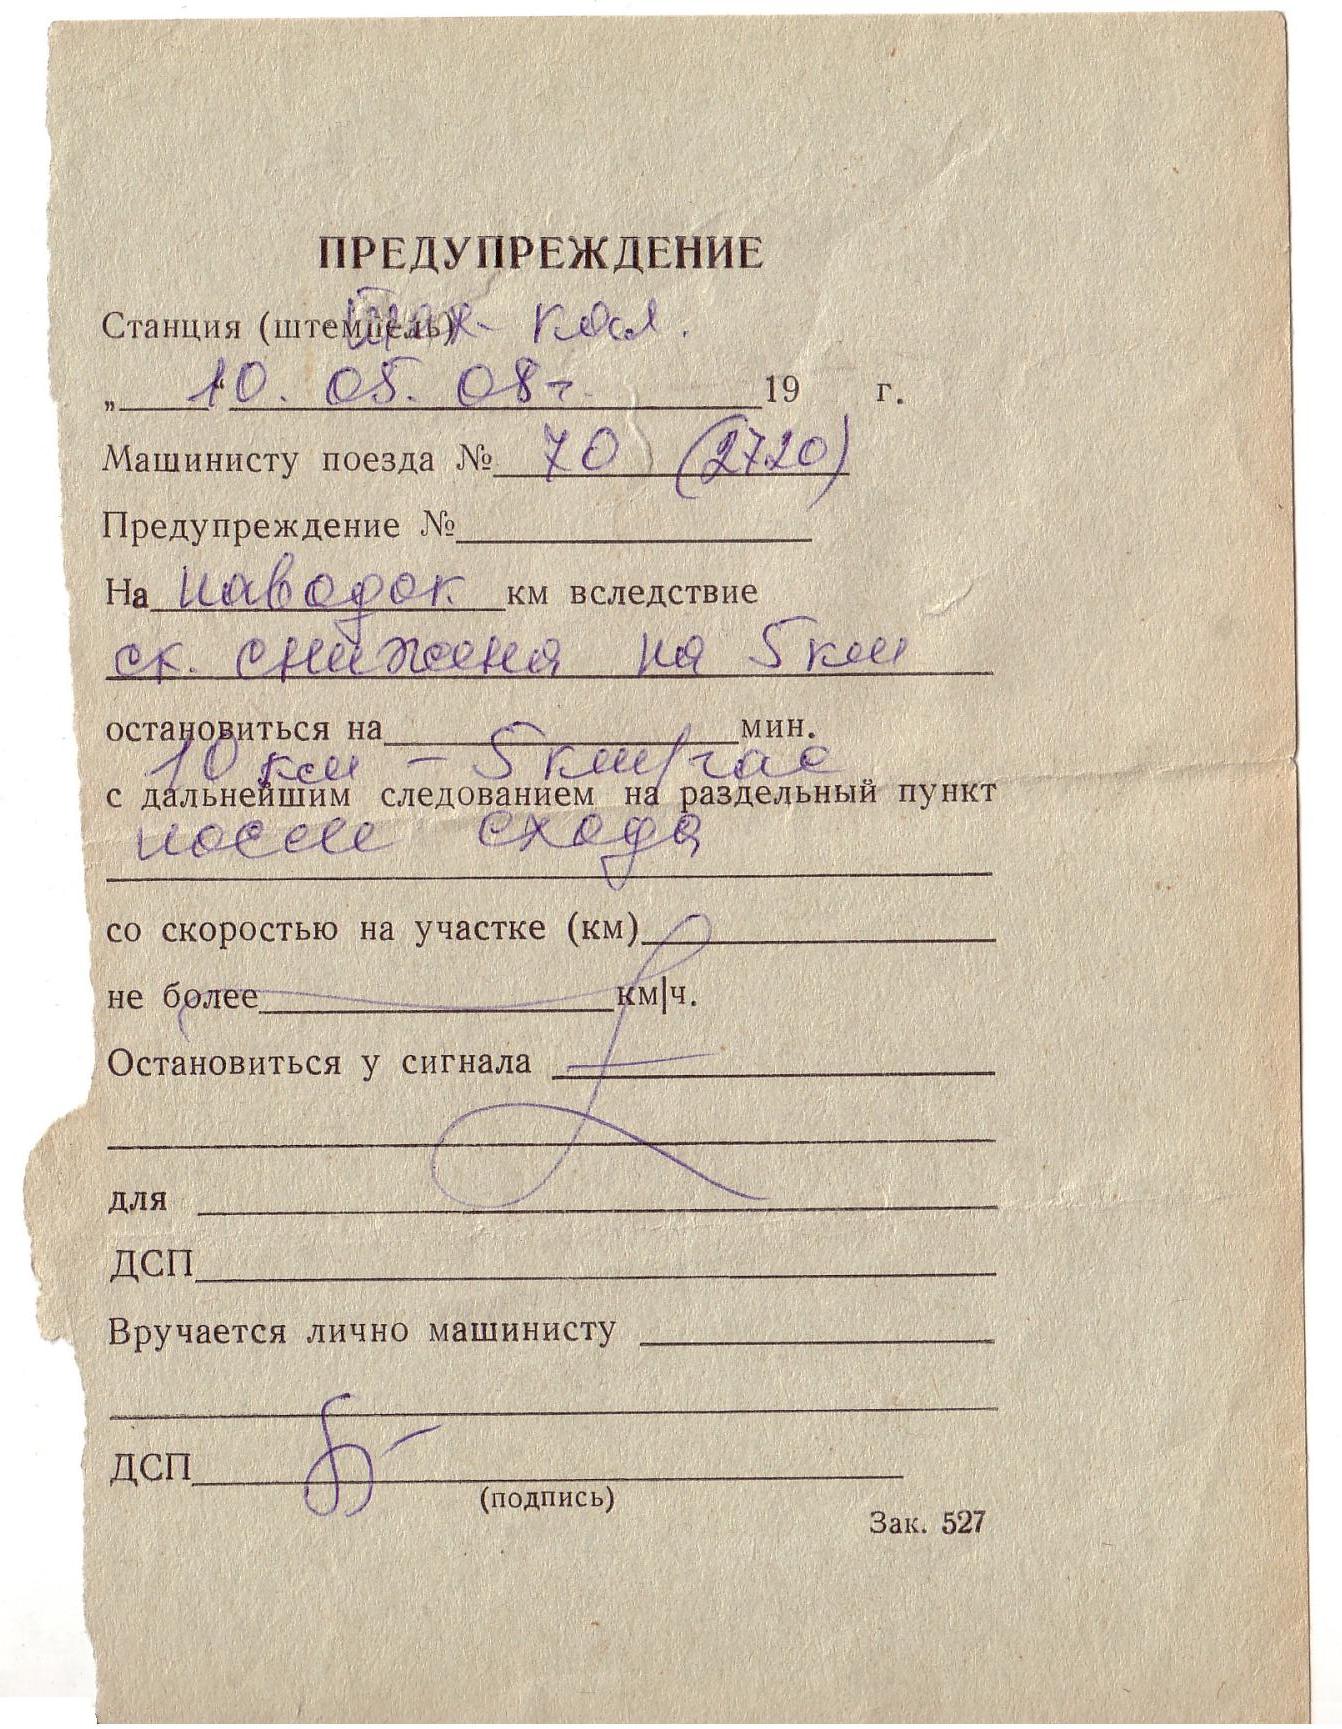 ПРЕДУПРЕЖДЕНИЕ
Станция (штемпель) кол.
„ 10. 05. 08г. 19 г.
Машинисту поезда № 70 (2720)
Предупреждение №
На паводок км вследствие
ск. снижена на 5 км
остановиться на мин.
10 км – 5 км/час
с дальнейшим следованием на раздельный пункт
после схода
со скоростью на участке (км)
не более км|ч.
Остановиться у сигнала
для
ДСП
Вручается лично машинисту
ДСП
(подпись)
Зак. 527